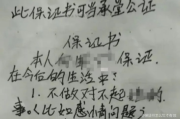 此保证书可当承重公证
保证书
本人何 保证,
在今后的生活中:
1.不做对不起 的
事。(比如感情问题)